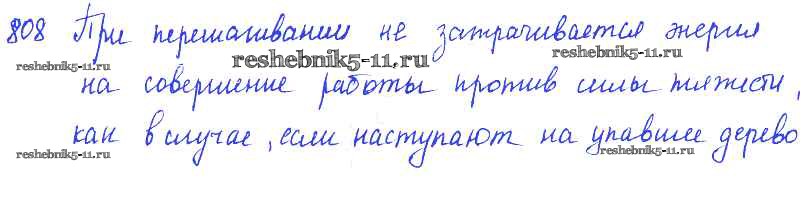 808 При перешагивании не затрачивается энергия
reshebnik5-11.ru reshebnik5-11.ru reshebnik5-11.ru
на совершение работы против силы тяжести,
как в случае, если наступают на упавшее дерево
reshebnik5-11.ru reshebnik5-11.ru reshebnik5-11.ru